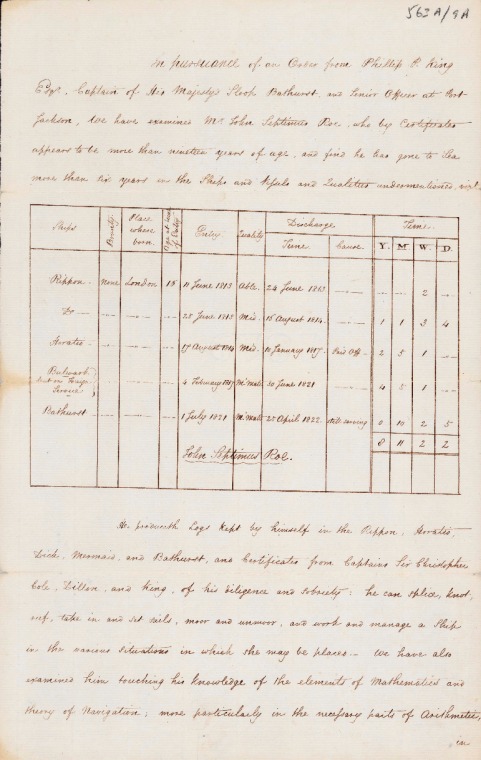 563A/9A
In pursuance of an Order from Phillip P. King
Esqr. Captain of His Majesty's Sloop Bathurst, and Senior Officer at Port
Jackson, We have examined Mr. John Septimus Roe, who by Certificates
appears to be more than nineteen years of age, and find he has gone to Sea
more than six years in the Ships and Vessels and Qualities undermentioned, vizt.
Ships Bounty Place where born. Age at time of Entry Entry Quality Discharge Time.
Time. Cause. Y. M. W. D.
Rippon. None London 15 11 June 1813 Able. 24 June 1813 — — — 2 —
Do — — — — 25 June 1813 Mid. 16 August 1814. — 1 1 3 4
Horatio — — — — 17 August 1814 Mid. 10 January 1817. Paid Off — 2 5 1 —
Bulwark
but on
Service
— — — 4 February 1817 M. Mate 30 June 1821 — 4 5 1 —
Bathurst — — — 1 July 1821 M. Mate 25 April 1822. still serving 0 10 2 5
8 11 2 2
John Septimus Roe.
He produceth Logs kept by himself in the Rippon, Horatio,
Dick, Mermaid, and Bathurst, and Certificates from Captains Sir Christopher
Cole, Dillon, and King, of his diligence and sobriety: he can splice, knot,
reef, take in and set sails, moor and unmoor, and work and manage a Ship
in the various situations in which she may be placed — We have also
examined him touching his knowledge of the elements of Mathematics and
theory of Navigation; more particularly in the necessary parts of Arithmetic,
in